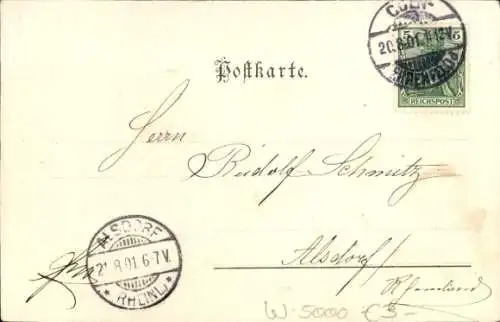 CÖLN-
20.8.01.
EHRENFELD
5 5
REICHSPOST
Postkarte.
Herrn
Rudolf Schmitz
ALSDORF
21.8.01.6-7V.
* RHEINL. *
Alsdorf
Rheinland
W-5000 €3-